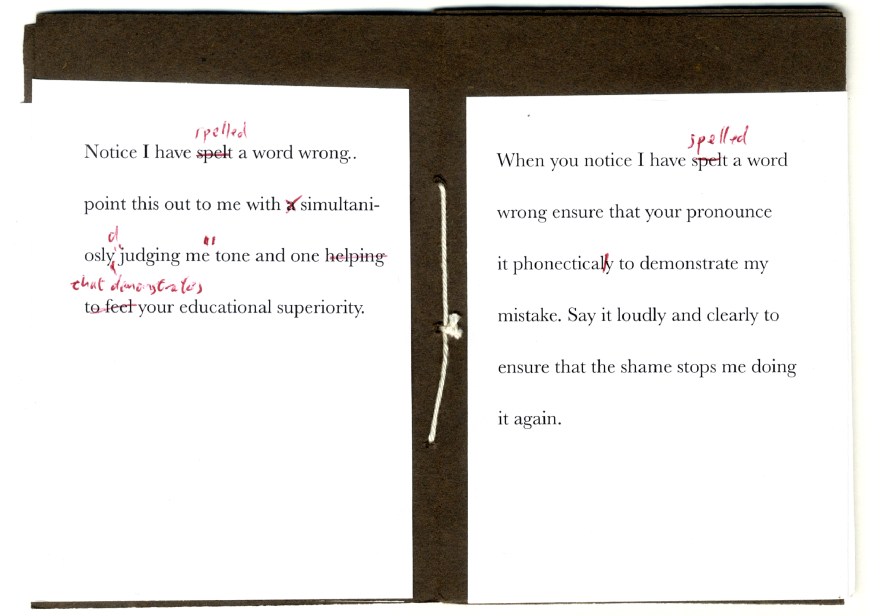 spelled
Notice I have spelt a word wrong..
point this out to me with a simultani-
d " "
osly judging me tone and one helping
that demonstrates
to feel your educational superiority.
spelled
When you notice I have spelt a word
wrong ensure that your pronounce
it phonectically to demonstrate my
mistake. Say it loudly and clearly to
ensure that the shame stops me doing
it again.